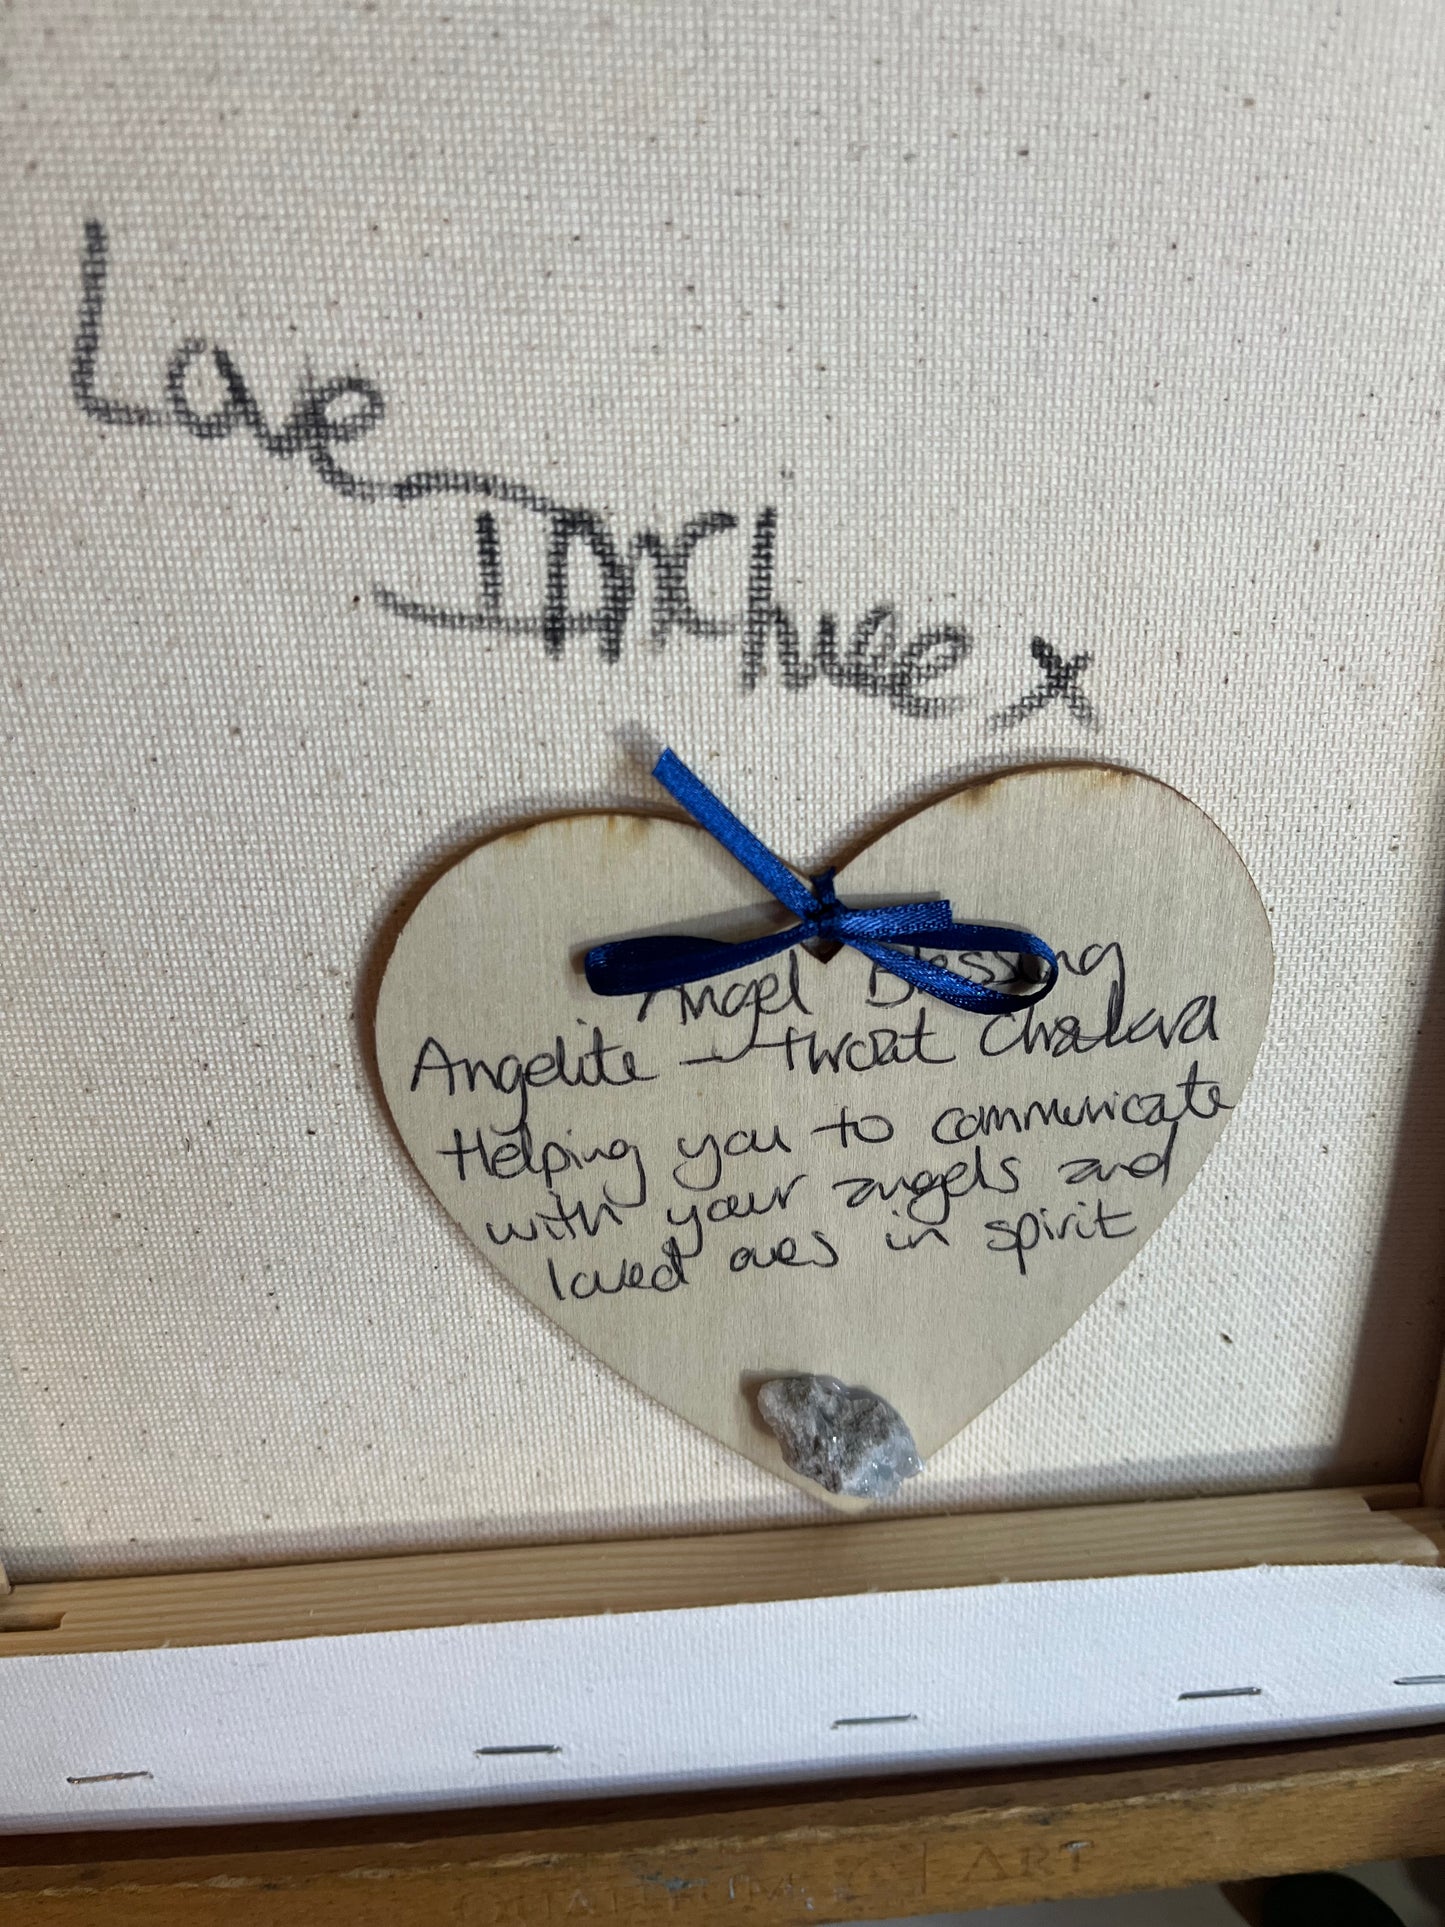 Love
x
Angel Blessing
Angelite - throat chakra
Helping you to communicate
with your angels and
loved ones in spirit
ART